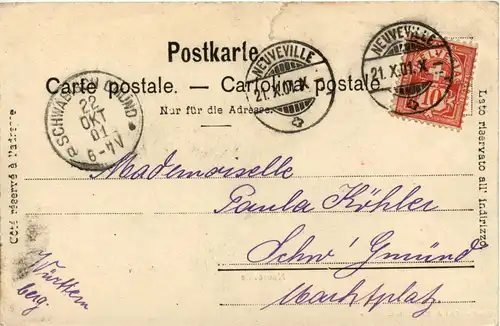 Postkarte.
Carte postale. — Cartolina postale.
Nur für die Adresse.
NEUVEVILLE
21.X.01.X
NEUVEVILLE
21.X.01.X
HELVETIA
10
SCHWÄB. GMÜND
22
OKT
01
6-7N
Côté réservé à l'adresse
Lato riservato all' indirizzo
Mademoiselle
Paula Köhler
Schw. Gmünd
Marktplatz.
Württem
berg.